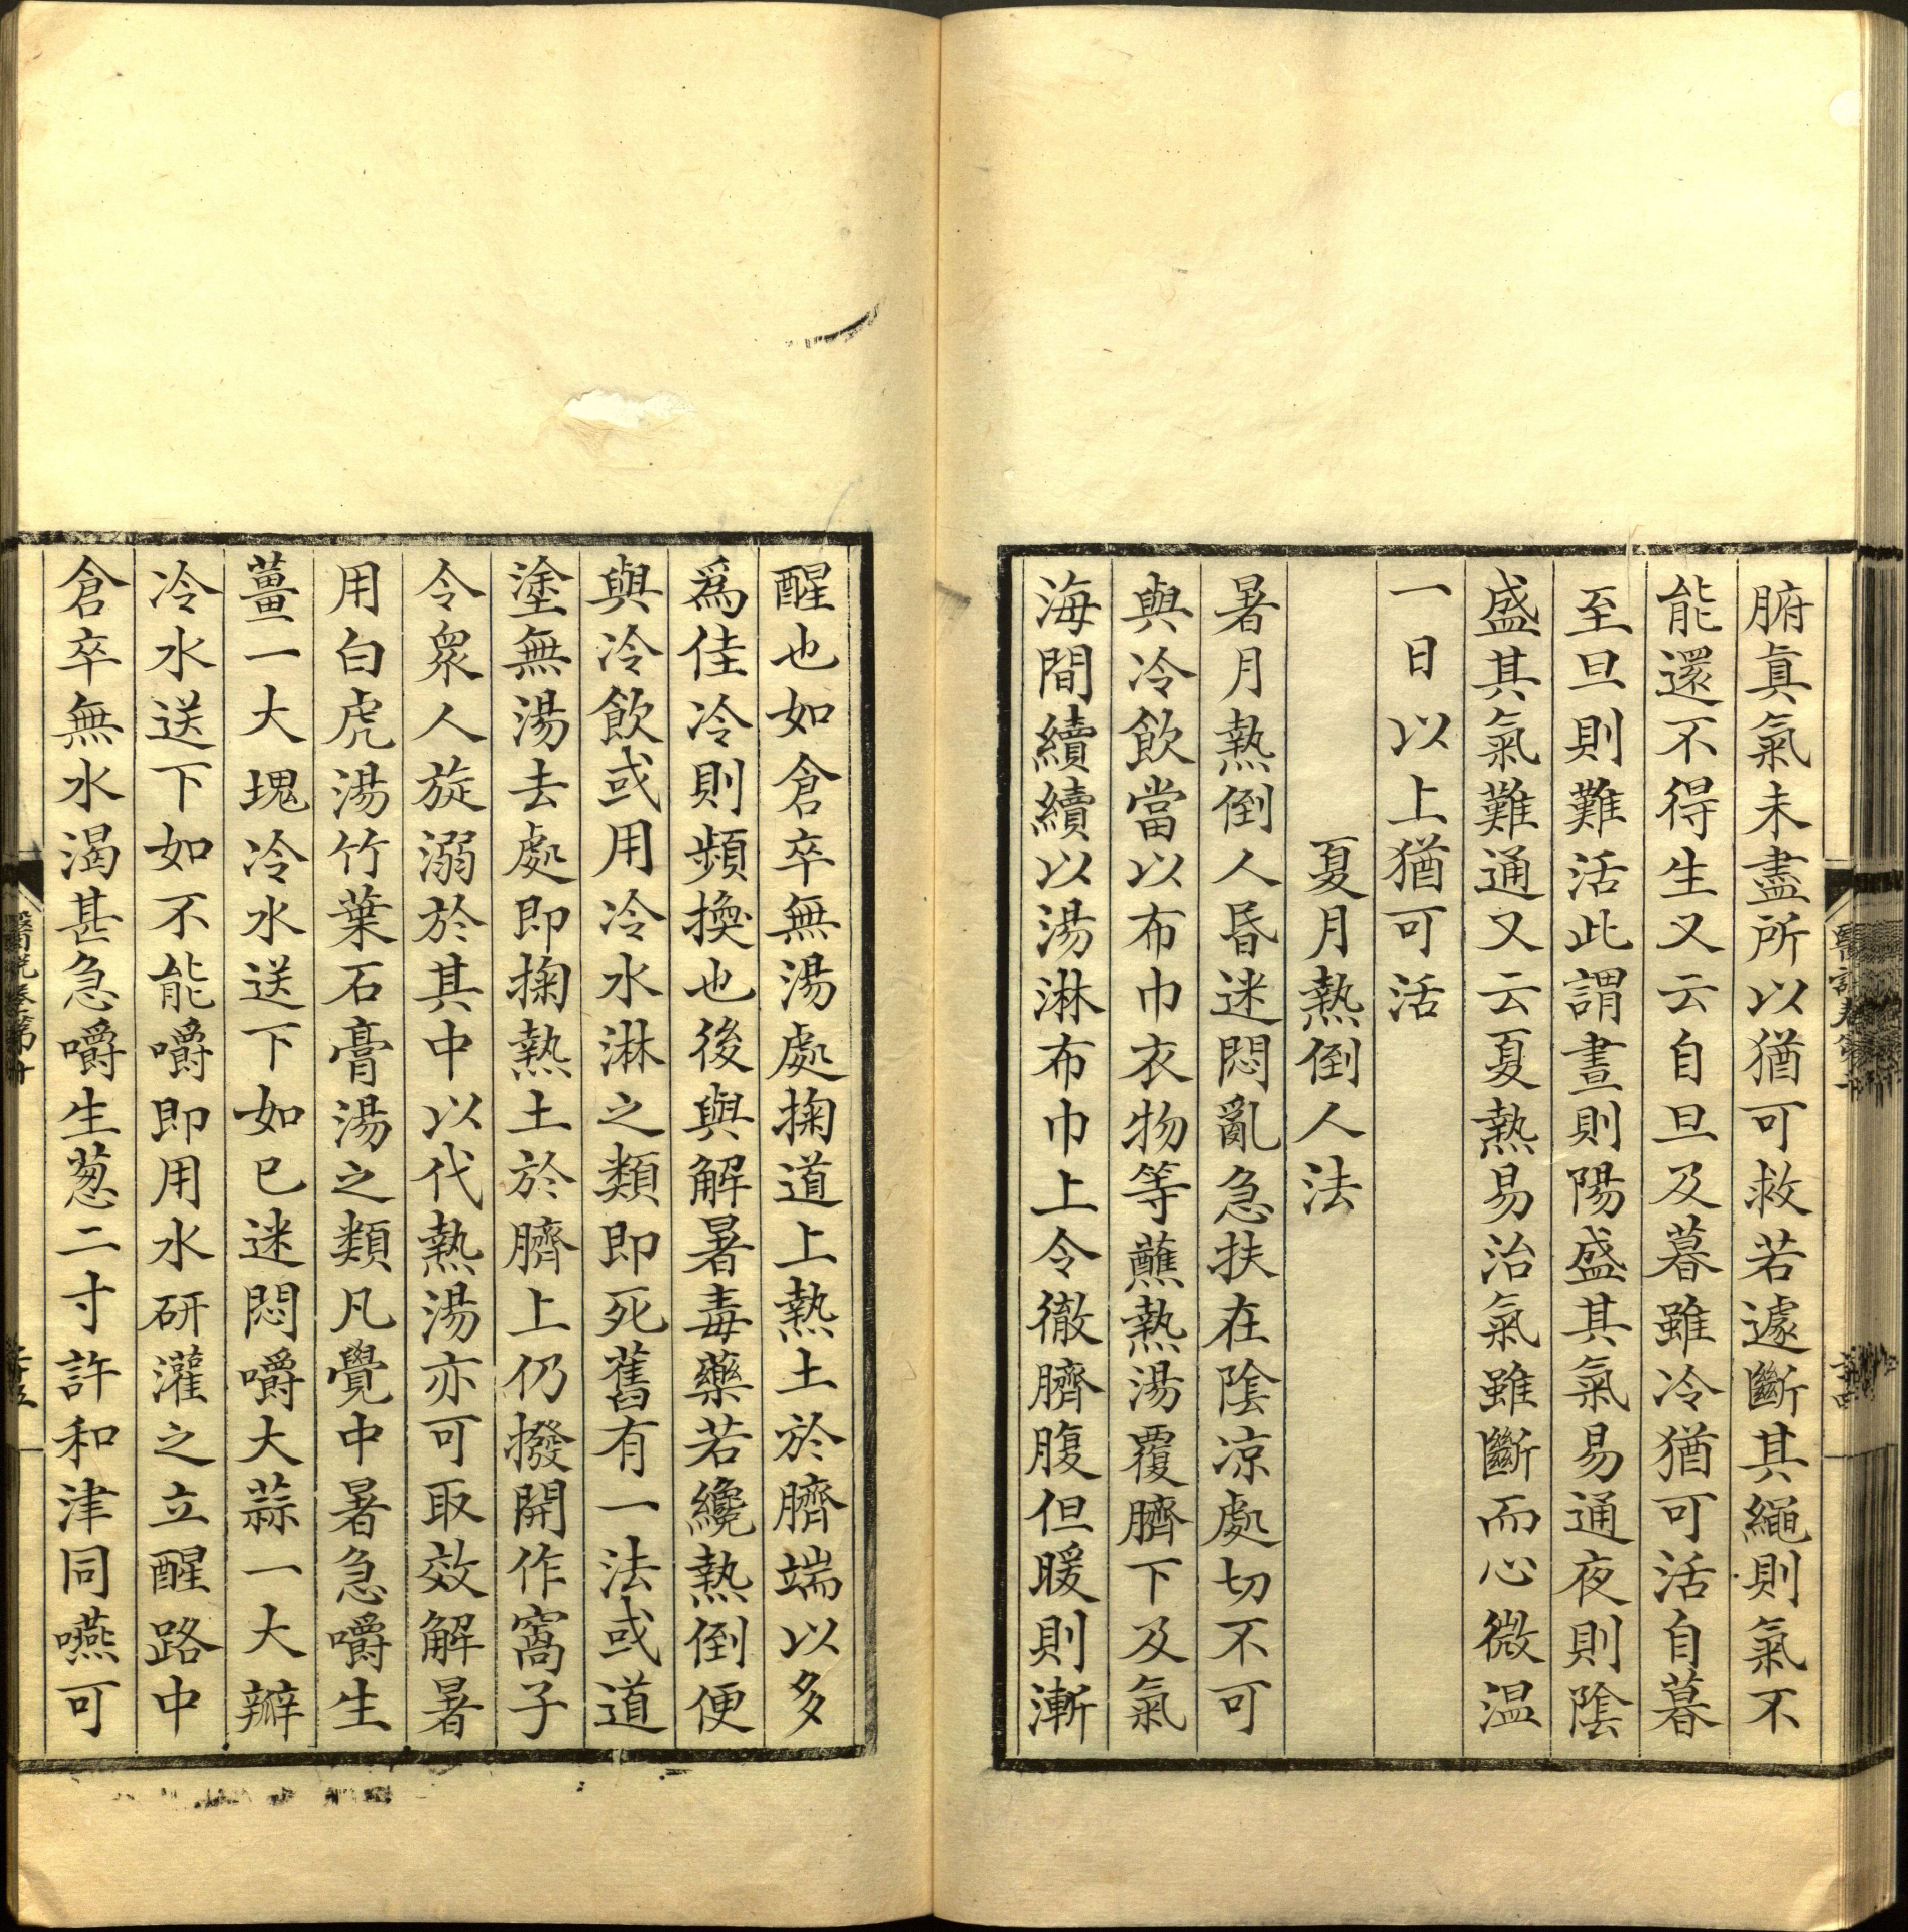 腑真氣未盡所以猶可救若遽斷其繩則氣不
能還不得生又云自旦及暮雖冷猶可活自暮
至旦則難活此謂晝則陽盛其氣易通夜則陰
盛其氣難通又云夏熱易治氣雖斷而心微温
一日以上猶可活
夏月熱倒人法
暑月熱倒人昏迷悶亂急扶在陰凉處切不可
與冷飲當以布巾衣物等蘸熱湯覆臍下及氣
海間續續以湯淋布巾上令徹臍腹但暖則漸
醒也如倉卒無湯處掬道上熱土於臍端以多
爲佳冷則頻換也後與解暑毒藥若纔熱倒便
與冷飲或用冷水淋之類即死舊有一法或道
塗無湯去處即掬熱土於臍上仍撥開作窩子
令衆人旋溺於其中以代熱湯亦可取效解暑
用白虎湯竹葉石膏湯之類凡覺中暑急嚼生
薑一大塊冷水送下如已迷悶嚼大蒜一大瓣
冷水送下如不能嚼即用水研灌之立醒路中
倉卒無水渴甚急嚼生葱二寸許和津同嚥可
醫說卷第十